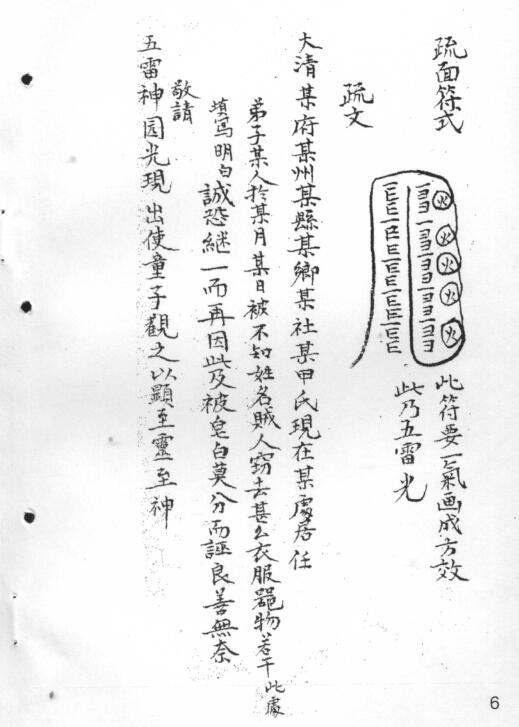 疏面符式
火
火
火
火
火
此符要一氣画成方效
此乃五雷光
疏文
大清某府某州某縣某鄉某社某甲氏現在某處居任
弟子某人於某月某日被不知姓名賊人竊去甚么衣服器物若干此處
填寫明白誠恐継一而再因此及被皂白莫分而誣良善無奈
敬請
五雷神园光現出使童子觀之以顯至靈至神
6